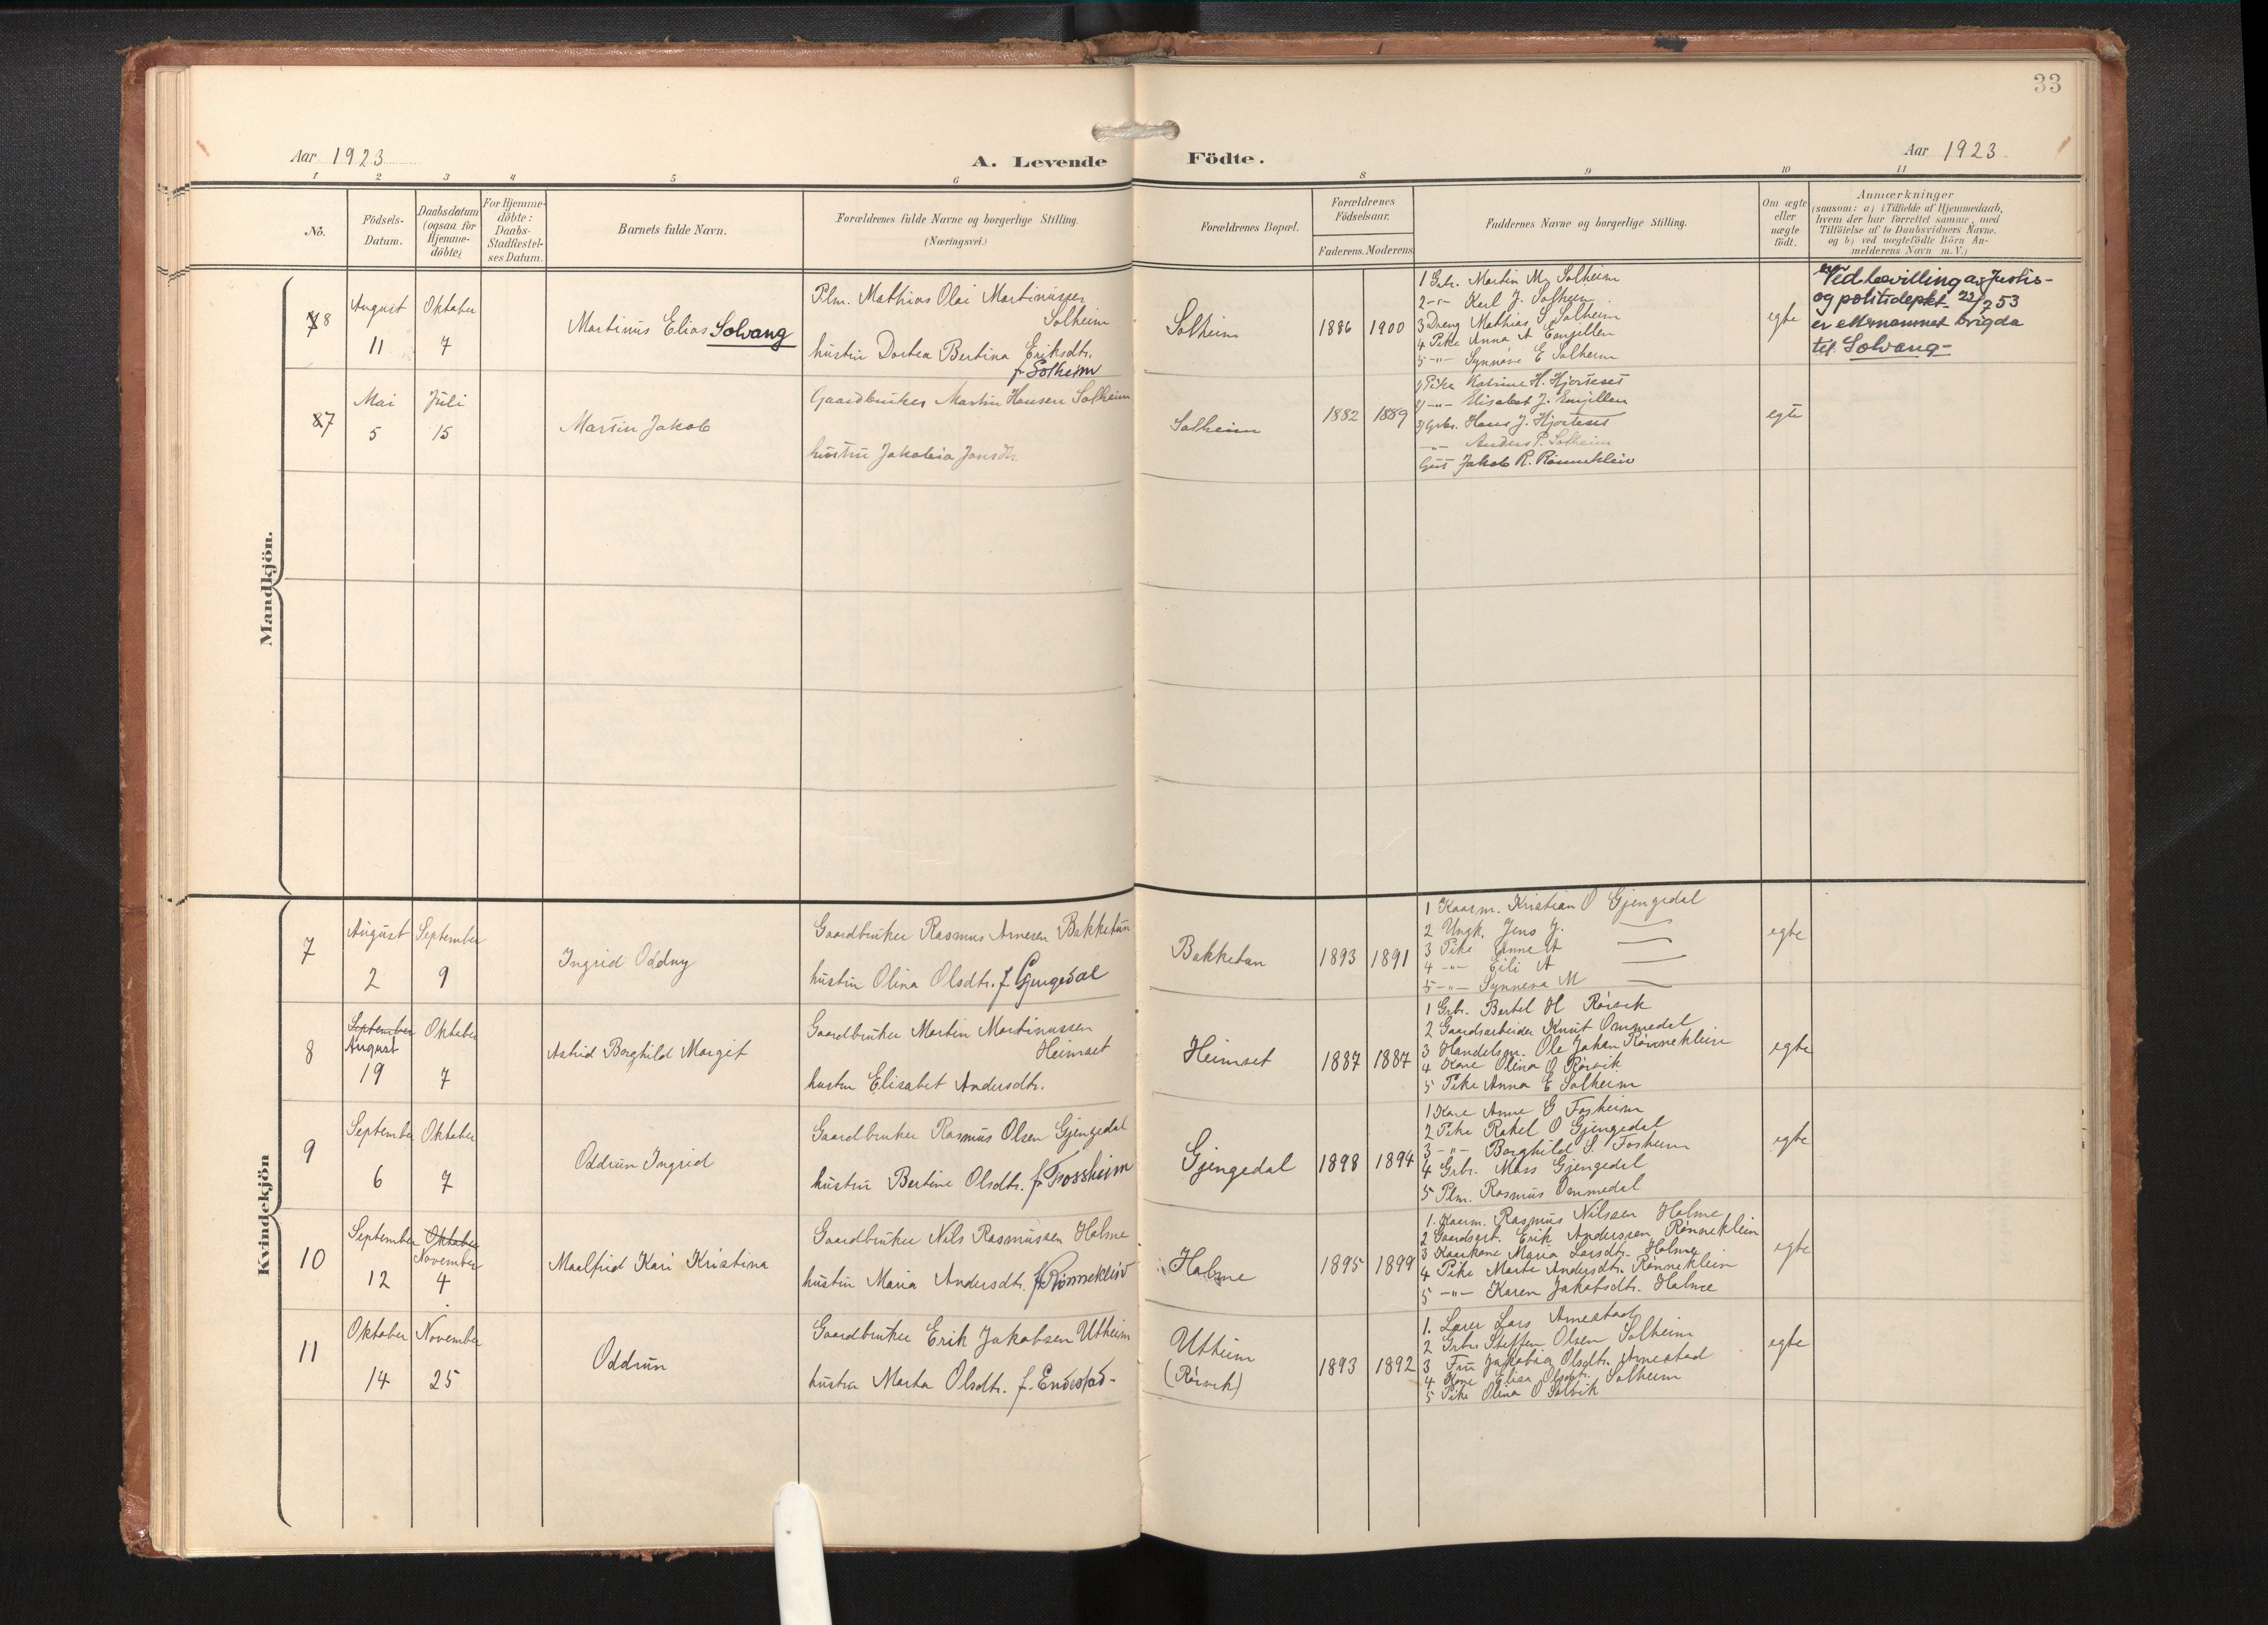 33
Aar 1923
A. Levende Födte.
Aar 1923
1 2 3 4 5 6 8 9 10 11
No.
Födsels-Datum.
Daabsdatum (ogsaa for Hjemme-döbte)
For Hjemme-döbte: Daabs-Stadfæstel-ses Datum.
Barnets fulde Navn.
Forældrenes fulde Navne og borgerlige Stilling.
(Næringsvei.)
Forældrenes Bopæl.
Forældrenes Födselsaar.
Faderens. Moderens
Faddernes Navne og borgerlige Stilling.
Om ægte eller uægte födt.
Anmærkninger
(saasom: a) i Tilfælde af Hjemmedaab,
hvem der har forrettet samme, med
Tilföielse af to Daabsvidners Navne.
og b) ved uægtefödte Börn An-
melderens Navn m. V.)
Mandkjön.
8
August 11
Oktober 7
Martinus Elias Solvang
Plm. Mathias Olai Martinussen
Solheim
hustru Dortea Bertina Eriksdtr.
f. Solheim
Solheim
1886 1900
1 Gbr. Martin M. Solheim
2 -"- Karl J. Solheim
3 Dreng Mathias S. Solheim
4 Pike Anna A Emjellen
5 -"- Synnøve E Solheim
egte
Ved bevilling av Justis-
og politidepkt. 23/2 53
er etternamnet brigda
til Solvang-
7
Mai 5
Juli 15
Martin Jakob
Gaardbruker Martin Hansen Solheim
hustru Jakobia Jonsdtr.
Solheim
1882 1889
1) Pike Katrine H. Hjorteset
2) -"- Elisabet J. Emjellen
3) Grbr. Hans J. Hjorteset
-"- Anders P. Solheim
Gut Jakob R. Rønnekleiv
egte
Kvindekjön
7
August 2
September 9
Ingrid Oddny
Gaardbruker Rasmus Arnesen Bakketun
hustru Olina Olsdtr. f. Gjengedal
Bakketun
1893 1891
1 Kaarm. Kristian O Gjengedal
2 Ungk. Jens J.
3 Pike Anne A
4 -"- Eili A
5 -"- Synneva M
egte
8
September
August 19
Oktober 7
Astrid Borghild Margit
Gaardbruker Martin Martinussen
Heimset
hustru Elisabet Andersdtr.
Heimset
1887 1887
1 Grbr. Bertel H Rørvik
2 Gaardsarbeider Knut Ommedal
3 Handelsm. Ole Johan Rønnekleiv
4 Kone Olina O Rørvik
5 Pike Anna E Solheim
egte
9
September 6
Oktober 7
Oddrun Ingrid
Gaardbruker Rasmus Olsen Gjengedal
hustru Bertine Olsdtr. f. Fossheim
Gjengedal
1898 1894
1 Kone Anne G Fosheim
2 Pike Rakel O Gjengedal
3 -"- Borghild S. Fosheim
4 Grbr. Mons Gjengedal
5 Plm. Rasmus Ommedal
egte
10
September 12
Oktober
November 4
Maalfrid Kari Kristina
Gaardbruker Nils Rasmussen Holme
hustru Maria Andersdtr. f. Rønnekleiv
Holme
1895 1899
1. Kaarm. Rasmus Nilssen Holme
2 Gaardsarb. Erik Anderssen Rønnekleiv
3 Kaarkone Maria Larsdtr. Holme
4 Pike Marte Andersdtr. Rønnekleiv
5 -"- Karen Jakobsdtr. Holme
egte
11
Oktober 14
November 25
Oddrun
Gaardbruker Erik Jakobsen Utheim
hustru Marta Olsdtr. f. Endestad-
Utheim
(Rørvik)
1893 1892
1. Lærer Lars Arnestad
2 Grbr. Steffen Olsen Solheim
3 Fru Jakobia Olsdtr. Arnestad
4 Kone Elisa Olsdtr. Solheim
5 Pike Olina O Solvik
egte